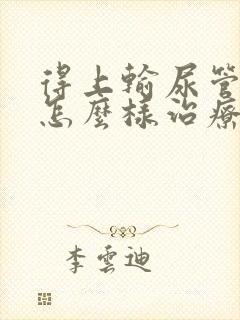 得上输尿管
怎麼樣治療
李雲迪